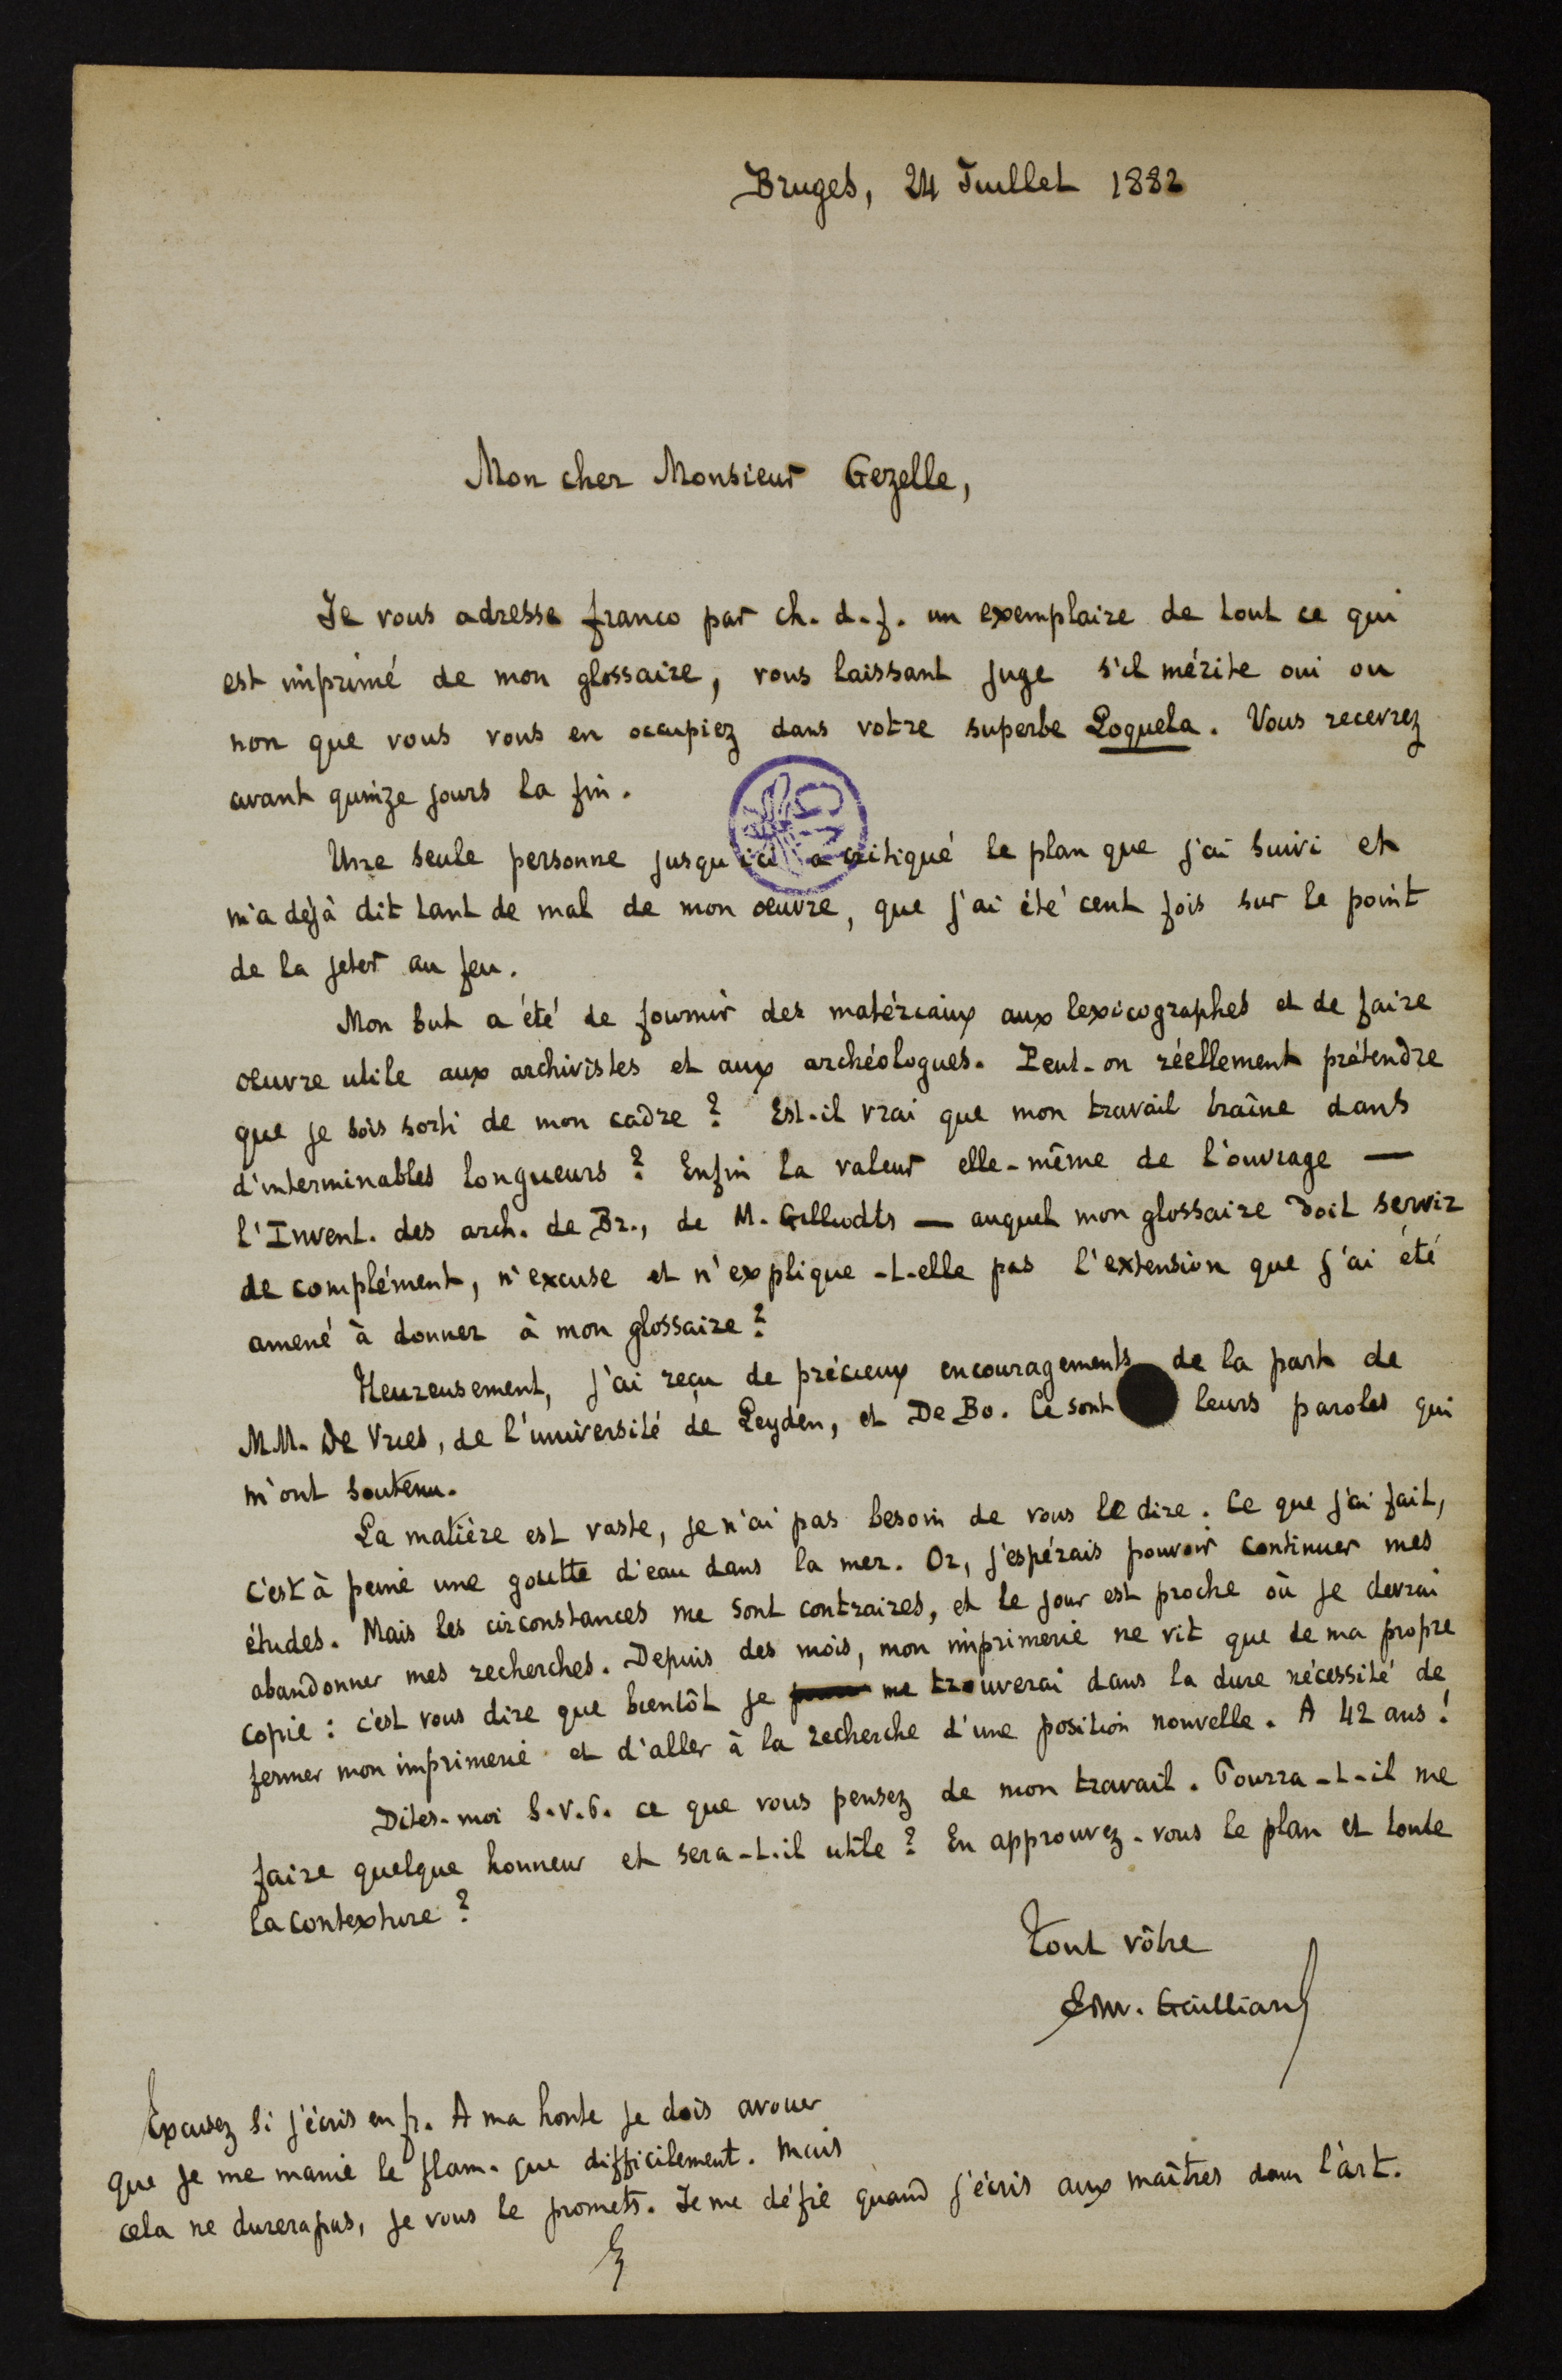 Bruges, 24 Juillet 1882
Mon cher Monsieur Gezelle,
Je vous adresse franco par ch. d. f. un exemplaire de tout ce qui
est imprimé de mon glossaire, vous laissant juge s'il mérite oui ou
non que vous vous en occupiez dans votre superbe Loquela. Vous recevrez
avant quinze jours la fin.
Une seule personne jusqu'ici a critiqué le plan que j'ai suivi et
m'a déjà dit tant de mal de mon oeuvre, que j'ai été cent fois sur le point
de la jeter au feu.
Mon but a été de fournir des matériaux aux lexicographes et de faire
oeuvre utile aux archivistes et aux archéologues. Peut-on réellement prétendre
que je sois sorti de mon cadre? Est-il vrai que mon travail traîne dans
d'interminables longueurs? Enfin la valeur elle-même de l'ouvrage —
l'Invent. des arch. de Br., de M. Gilliodts — auquel mon glossaire doit servir
de complément, n'excuse et n'explique-t-elle pas l'extension que j'ai été
amené à donner à mon glossaire?
Heureusement, j'ai reçu de précieux encouragements de la part de
MM. De Vries, de l'université de Leyden, et De Bo. Ce sont leurs paroles qui
m'ont soutenu.
La matière est vaste, je n'ai pas besoin de vous le dire. Ce que j'ai fait,
c'est à peine une goutte d'eau dans la mer. Or, j'espérais pouvoir continuer mes
études. Mais les circonstances me sont contraires, et le jour est proche où je devrai
abandonner mes recherches. Depuis des mois, mon imprimerie ne vit que de ma propre
copie: c'est vous dire que bientôt je me trouverai dans la dure nécessité de
fermer mon imprimerie et d'aller à la recherche d'une position nouvelle. A 42 ans!
Dites-moi s.v.p. ce que vous pensez de mon travail. Pourra-t-il me
faire quelque honneur et sera-t-il utile? En approuvez-vous le plan et toute
la contexture?
Tout vôtre
Edw. Gailliard
Excusez si j'écris en fr. A ma honte je dois avouer
que je me manie le flam. que difficilement. Mais
cela ne durera pas, je vous le promets. Je me défie quand j'écris aux maîtres dans l'art.